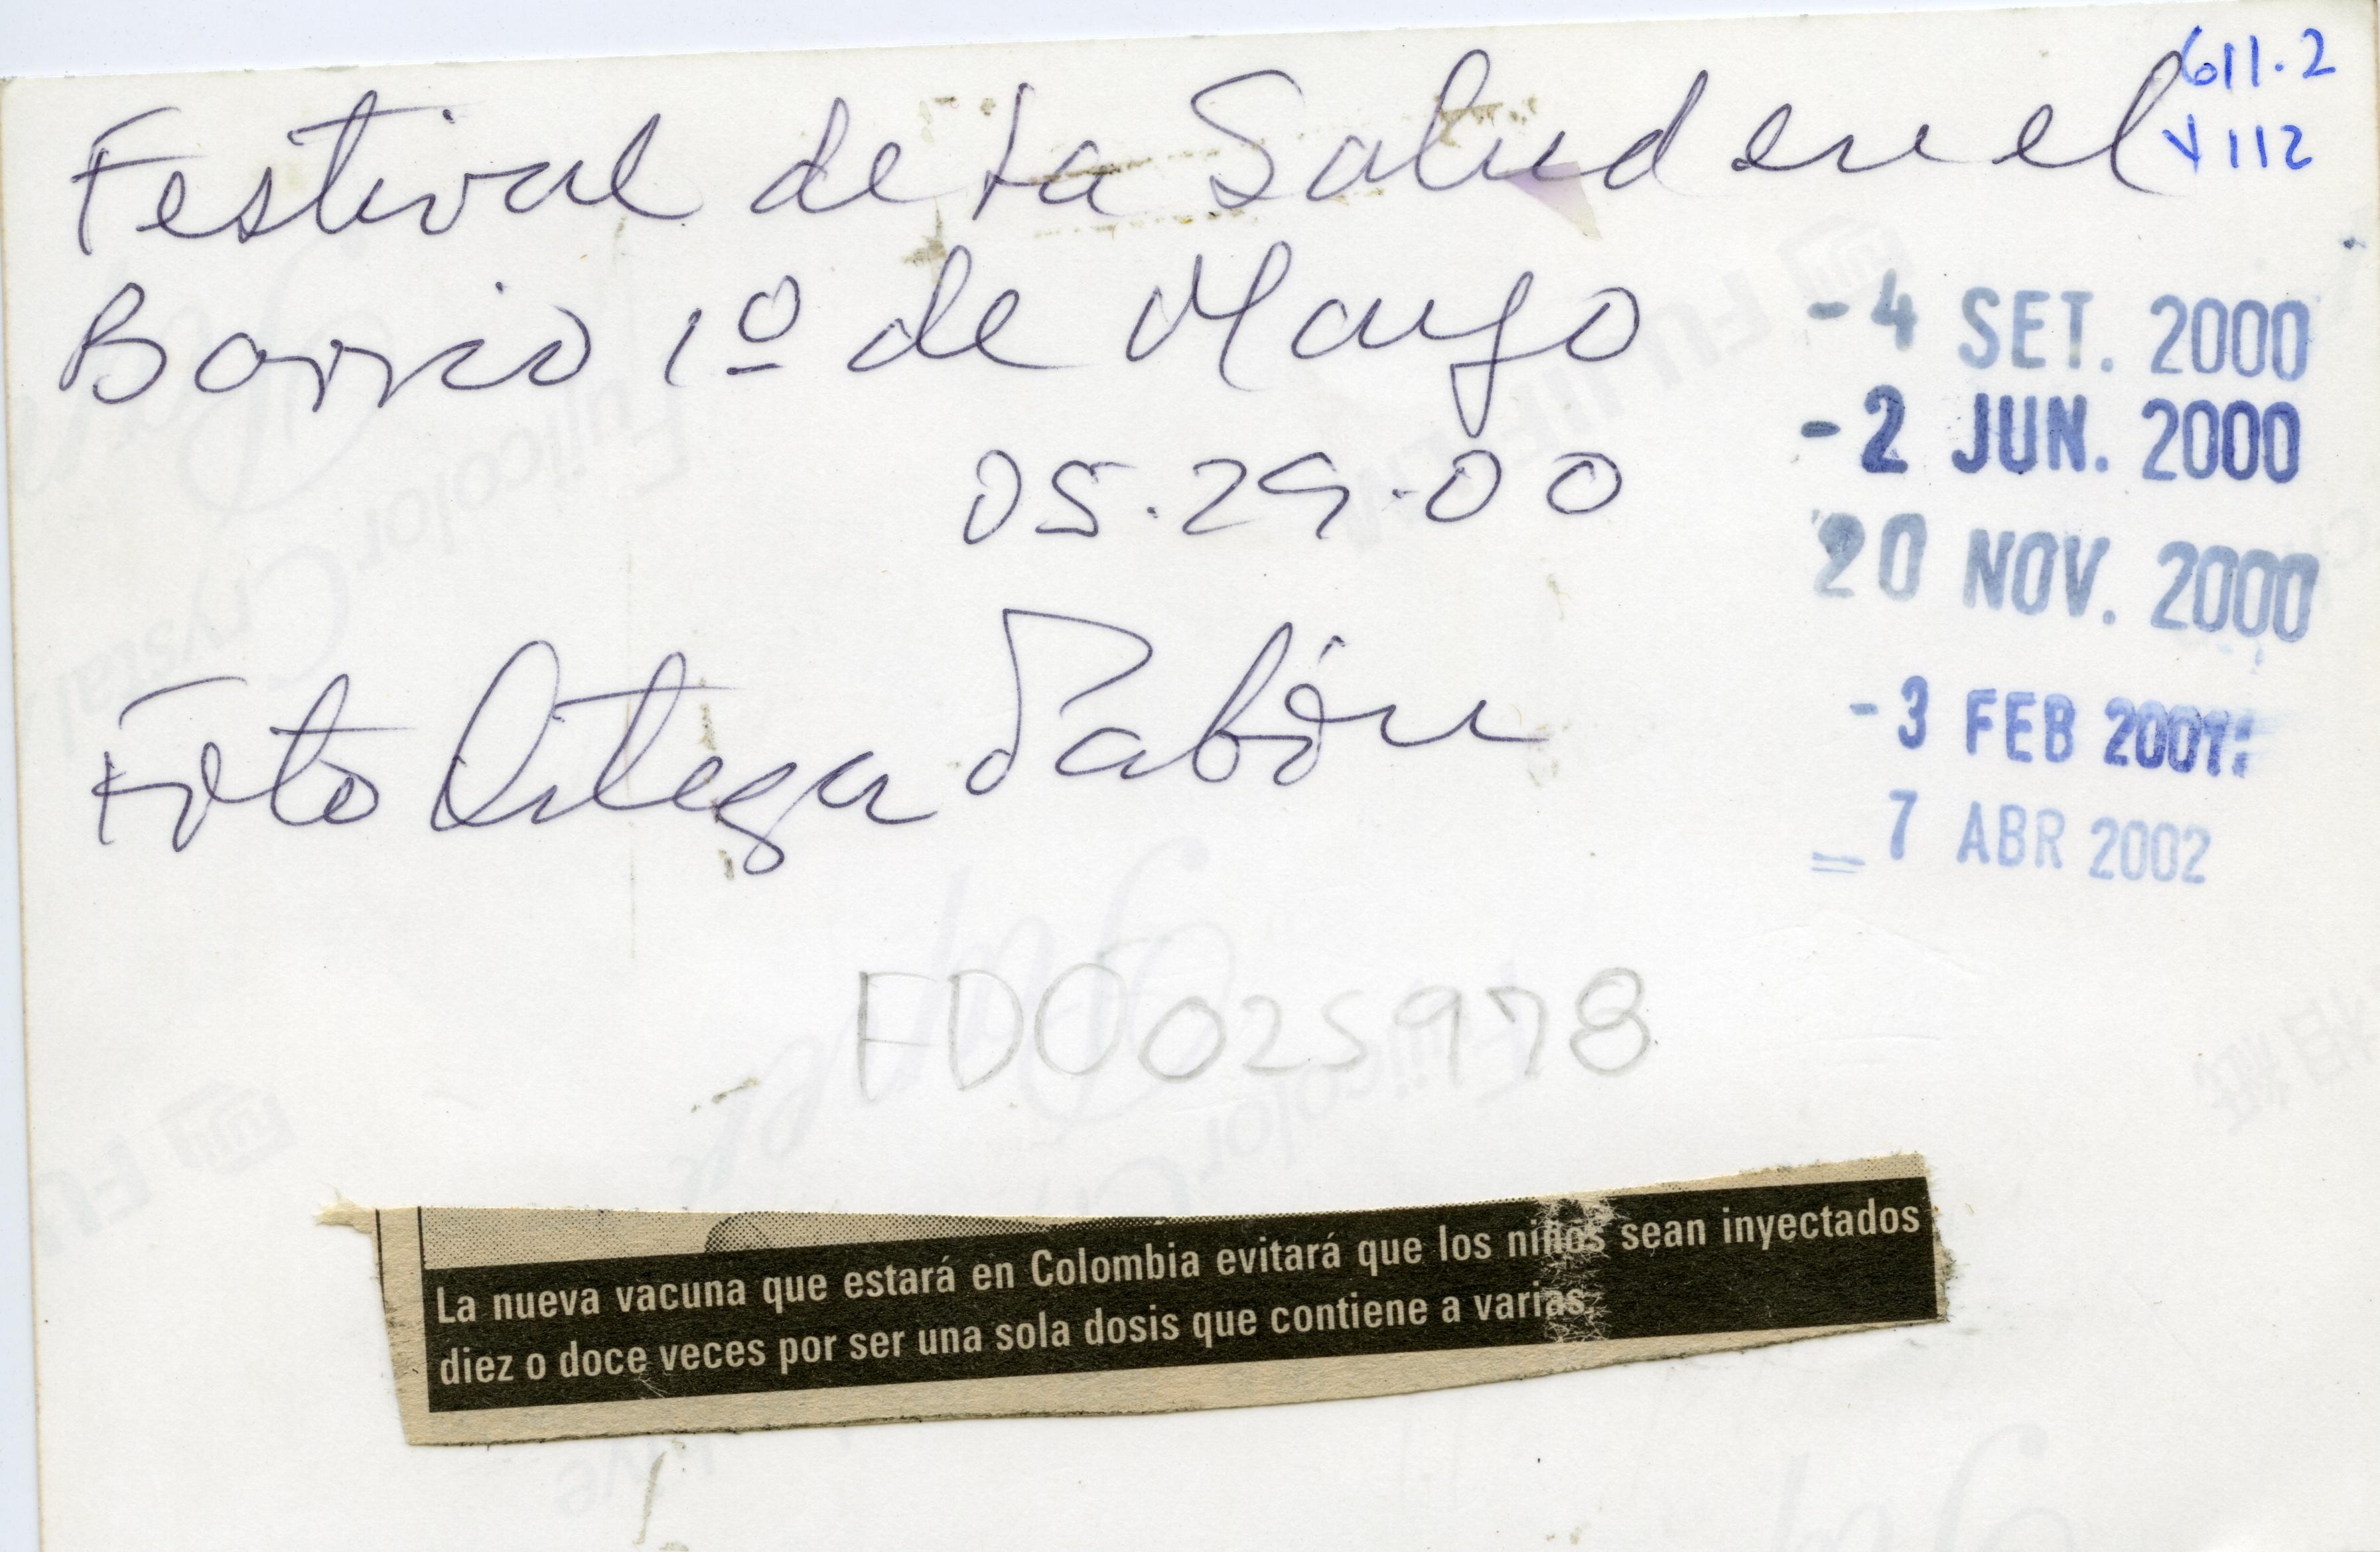 Festival de la Salud en el
Barrio 1º de Mayo
05.29.00
Foto Ortega Pabón
611.2
V112
-4 SET. 2000
-2 JUN. 2000
20 NOV. 2000
-3 FEB 2001
7 ABR 2002
FDO025978
La nueva vacuna que estará en Colombia evitará que los niños sean inyectados
diez o doce veces por ser una sola dosis que contiene a varias.
Fujicolor
Crystal